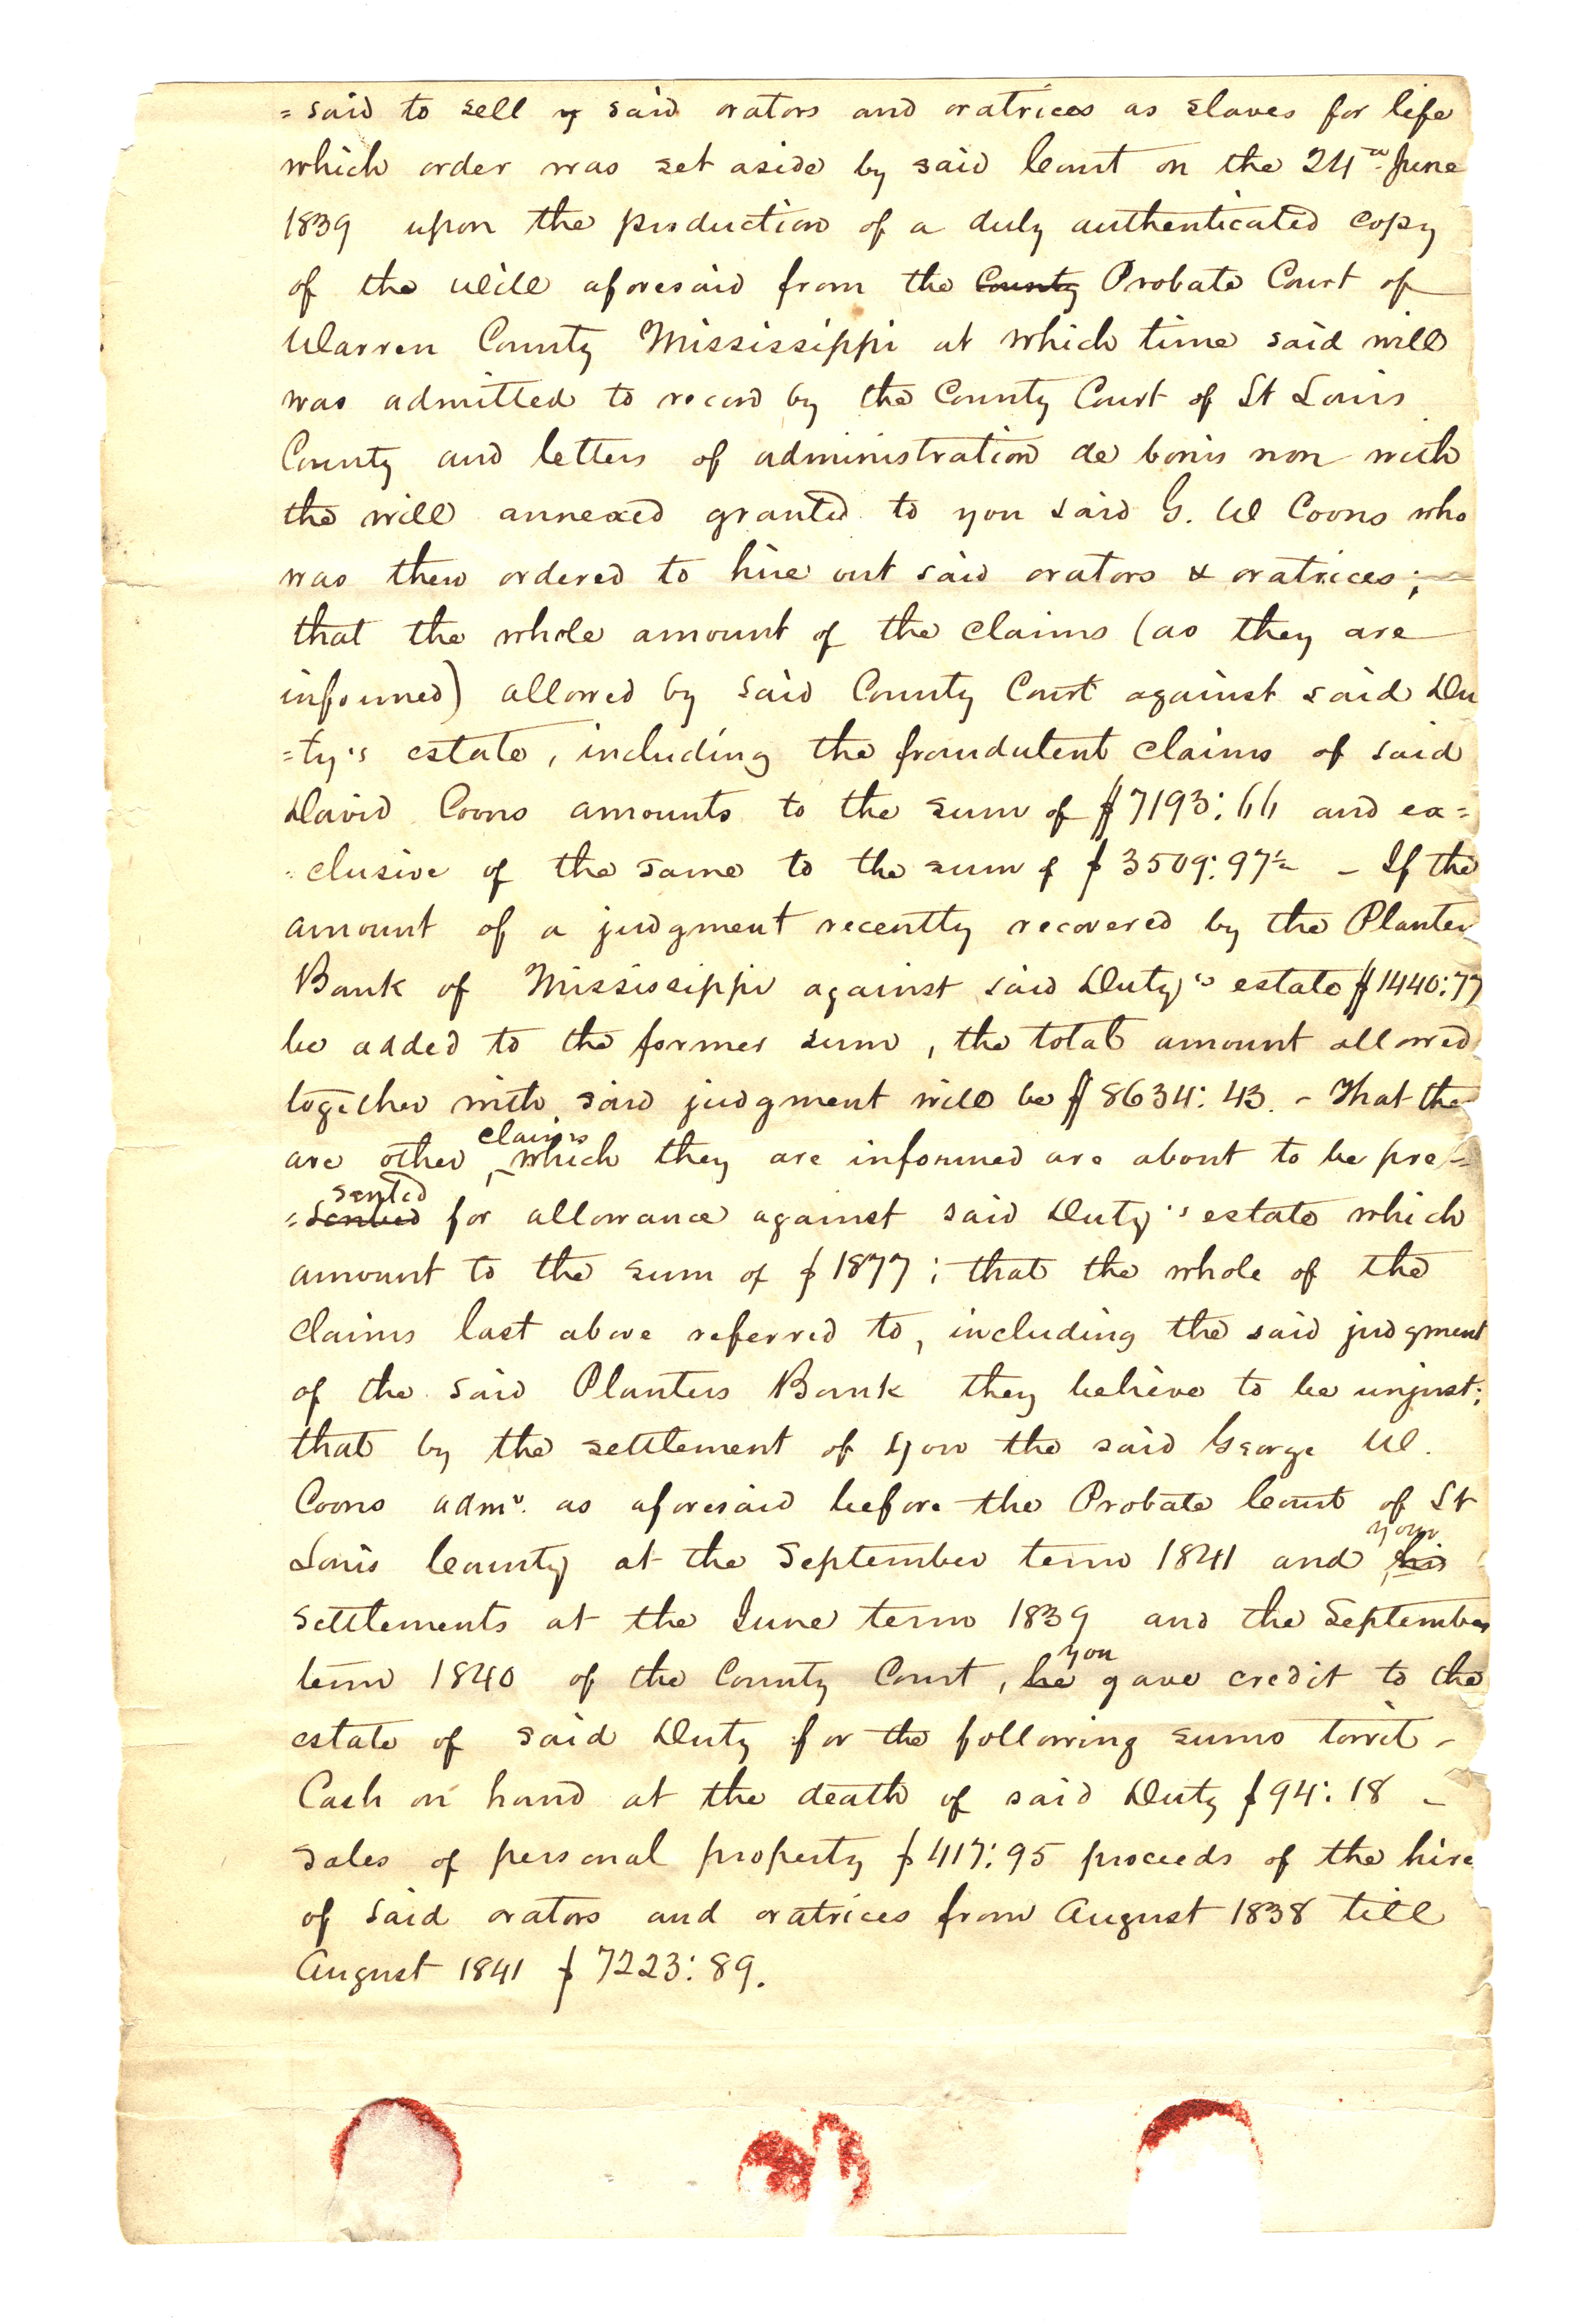 = said to sell y said orators and oratrices as slaves for life
which order was set aside by said Court on the 24th June
1839 upon the production of a duly authenticated copy
of the will aforesaid from the County Probate Court of
Warren County Mississippi at which time said will
was admitted to record by the County Court of St Louis
County and letters of administration de bonis non with
the will annexed granted to you said G. W Coons who
was then ordered to hire out said orators & oratrices;
that the whole amount of the claims (as they are
informed) allowed by said County Court against said Du
=ty's estate, including the fraudulent claims of said
David Coons amounts to the sum of $7193:66 and ex=
=clusive of the same to the sum of $3509:97½ - If the
amount of a judgment recently recovered by the Planters
Bank of Mississippi against said Duty's estate $1440:77
be added to the former sum, the total amount allowed
together with said judgment will be $8634:43. - That the
claims
are other which they are informed are about to be pre=
sented
=sented for allowance against said Duty's estate which
amount to the sum of $1877; that the whole of the
claims last above referred to, including the said judgment
of the said Planters Bank they believe to be unjust;
that by the settlement of you the said George W.
Coons admr. as aforesaid before the Probate Court of St
your
Louis County at the September term 1841 and his
settlements at the June term 1839 and the September
you
term 1840 of the County Court, he gave credit to the
estate of said Duty for the following sums towit -
Cash on hand at the death of said Duty $94:18 -
sales of personal property $417:95 proceeds of the hire
of said orators and oratrices from August 1838 till
August 1841 $7223:89.